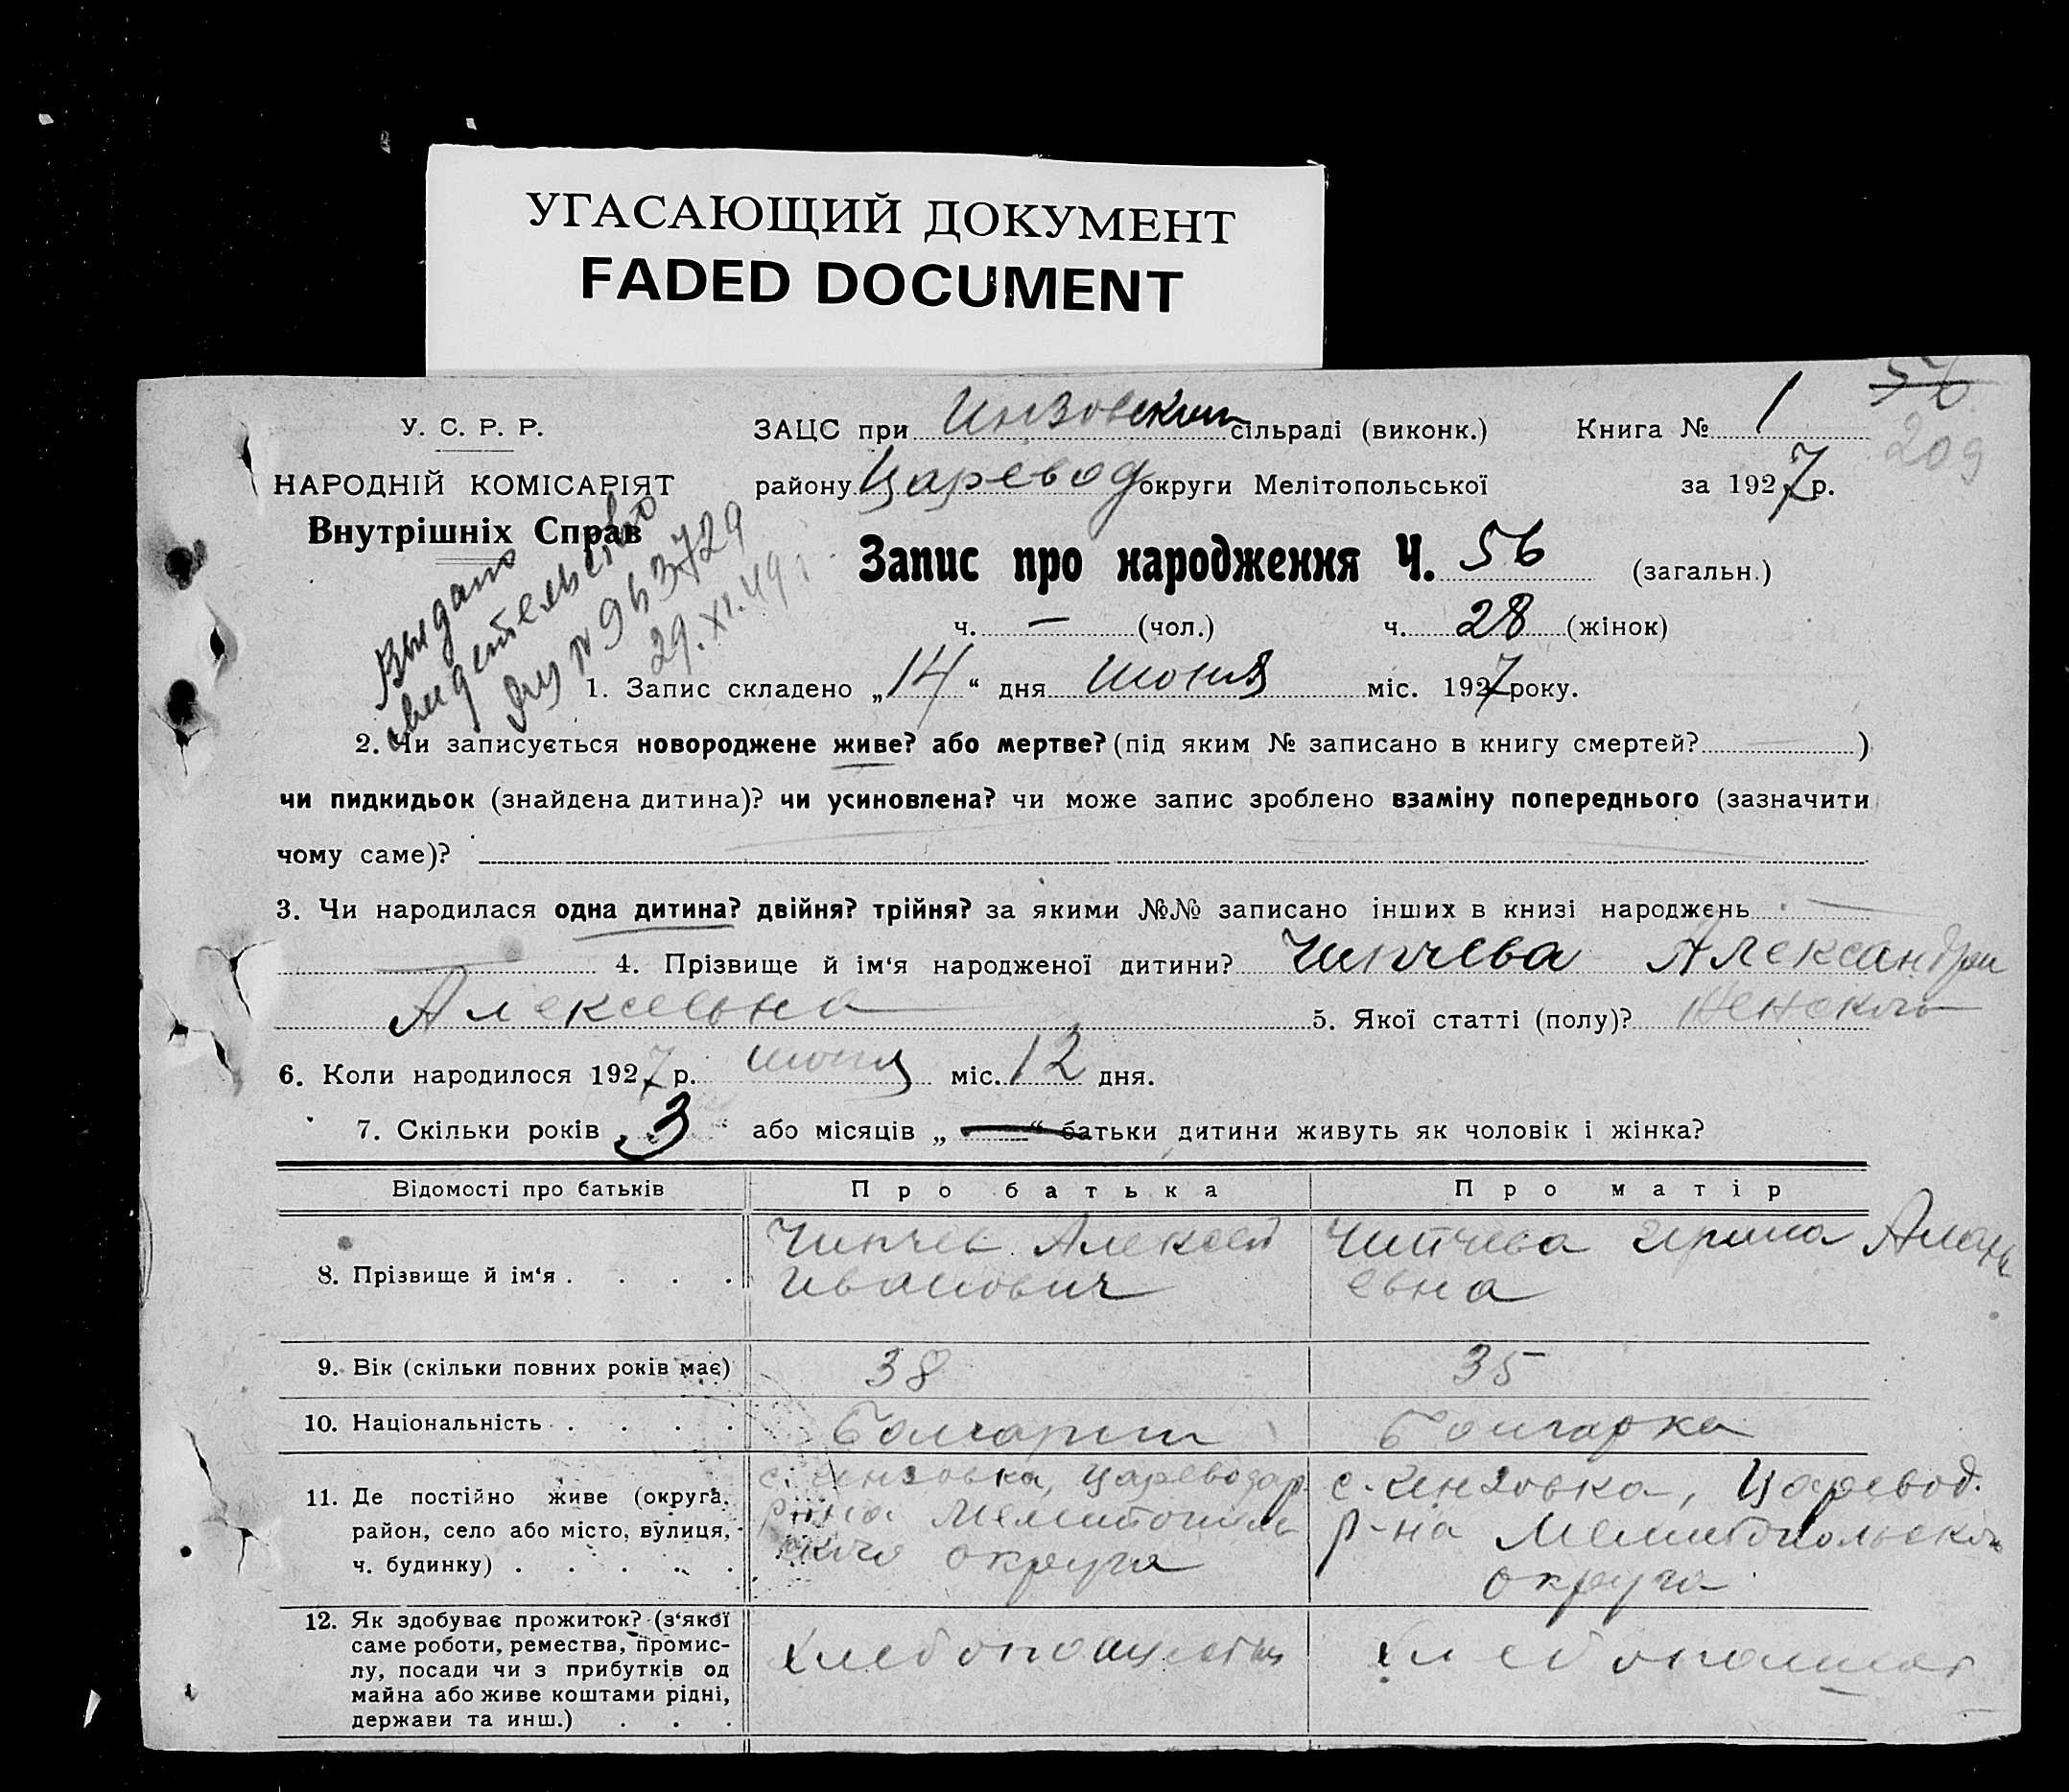 УГАСАЮЩИЙ ДОКУМЕНТ
FADED DOCUMENT
56
209
У. С. Р. Р.
НАРОДНІЙ КОМІСАРІЯТ
Внутрішніх Справ
ЗАЦС при Инзовском сільраді (виконк.) Книга № 1
району Царевод округи Мелітопольської за 1927 р.
Выдано
свидетельство
№ 963729
29.XI.49 г
Запис про народження Ч. 56 (загальн.)
ч. — (чол.) ч. 28 (жінок)
1. Запис складено „14“ дня июня міс. 1927 року.
2. Чи записується новороджене живе? або мертве? (під яким № записано в книгу смертей? )
чи пидкидьок (знайдена дитина)? чи усиновлена? чи може запис зроблено взаміну попереднього (зазначити
чому саме)?
3. Чи народилася одна дитина? двійня? трійня? за якими №№ записано інших в книзі народжень
4. Прізвище й ім'я народженої дитини? Чипчева Александра
Алексеевна 5. Якої статті (полу)? Женского
6. Коли народилося 1927 р. июня міс. 12 дня.
7. Скільки років „3“ або місяців „—“ батьки дитини живуть як чоловік і жінка?
Відомості про батьків Про батька Про матір
8. Прізвище й ім'я . . . . Чипчев Алексей Иванович Чипчева Ирина
евна
9. Вік (скільки повних років має) 38 35
10. Національність . . . . Болгарин Болгарка
11. Де постійно живе (округа, район, село або місто, вулиця, ч. будинку) . . . . .
с. Инзовка, Цареводар. р-на Мелитопольского округа
с. Инзовка, Царевод. р-на Мелитопольского округа
12. Як здобуває прожиток? (з'якої саме роботи, ремества, промислу, посади чи з прибутків од майна або живе коштами рідні, держави та инш.) . . .
Хлебопашество Хлебопашест